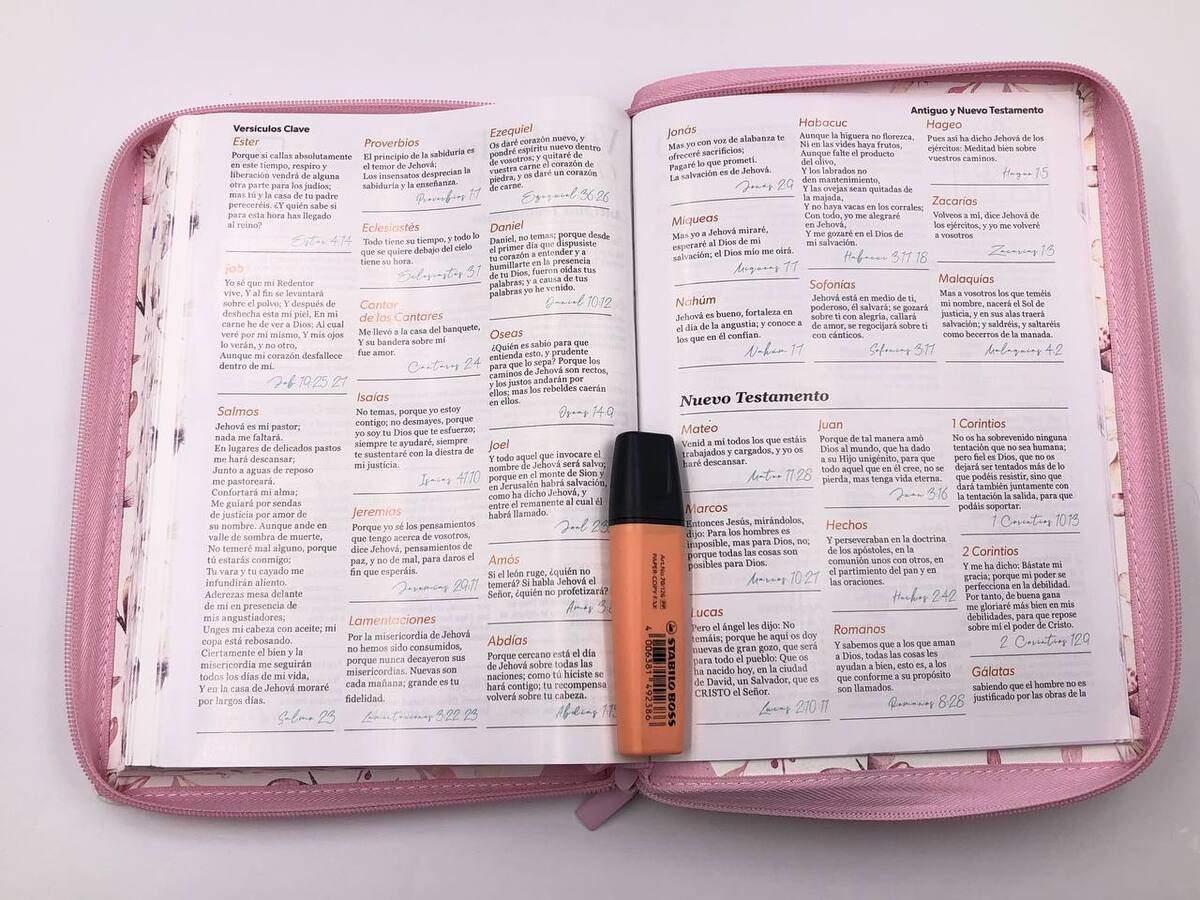 Versículos Clave
Ester
Porque si callas absolutamente
en este tiempo, respiro y
liberación vendrá de alguna
otra parte para los judíos;
mas tú y la casa de tu padre
pereceréis. ¿Y quién sabe si
para esta hora has llegado
al reino?
Ester 4:14
Job
Yo sé que mi Redentor
vive, Y al fin se levantará
sobre el polvo; Y después de
deshecha esta mi piel, En mi
carne he de ver a Dios; Al cual
veré por mí mismo, Y mis ojos
lo verán, y no otro,
Aunque mi corazón desfallece
dentro de mí.
Job 19:25, 27
Salmos
Jehová es mi pastor;
nada me faltará.
En lugares de delicados pastos
me hará descansar;
Junto a aguas de reposo
me pastoreará.
Confortará mi alma;
Me guiará por sendas
de justicia por amor de
su nombre. Aunque ande en
valle de sombra de muerte,
No temeré mal alguno, porque
tú estarás conmigo;
Tu vara y tu cayado me
infundirán aliento.
Aderezas mesa delante
de mí en presencia de
mis angustiadores;
Unges mi cabeza con aceite; mi
copa está rebosando.
Ciertamente el bien y la
misericordia me seguirán
todos los días de mi vida,
Y en la casa de Jehová moraré
por largos días.
Salmo 23
Proverbios
El principio de la sabiduría es
el temor de Jehová;
Los insensatos desprecian la
sabiduría y la enseñanza.
Proverbios 1:7
Eclesiastés
Todo tiene su tiempo, y todo lo
que se quiere debajo del cielo
tiene su hora.
Eclesiastés 3:1
Cantar
de los Cantares
Me llevó a la casa del banquete,
Y su bandera sobre mí
fue amor.
Cantares 2:4
Isaías
No temas, porque yo estoy
contigo; no desmayes, porque
yo soy tu Dios que te esfuerzo;
siempre te ayudaré, siempre
te sustentaré con la diestra de
mi justicia.
Isaías 41:10
Jeremías
Porque yo sé los pensamientos
que tengo acerca de vosotros,
dice Jehová, pensamientos de
paz, y no de mal, para daros el
fin que esperáis.
Jeremías 29:11
Lamentaciones
Por la misericordia de Jehová
no hemos sido consumidos,
porque nunca decayeron sus
misericordias. Nuevas son
cada mañana; grande es tu
fidelidad.
Lamentaciones 3:22, 23
Ezequiel
Os daré corazón nuevo, y
pondré espíritu nuevo dentro
de vosotros; y quitaré de
vuestra carne el corazón de
piedra, y os daré un corazón
de carne.
Ezequiel 36:26
Daniel
Daniel, no temas; porque desde
el primer día que dispusiste
tu corazón a entender y a
humillarte en la presencia
de tu Dios, fueron oídas tus
palabras; y a causa de tus
palabras yo he venido.
Daniel 10:12
Oseas
¿Quién es sabio para que
entienda esto, y prudente
para que lo sepa? Porque los
caminos de Jehová son rectos,
y los justos andarán por
ellos; mas los rebeldes caerán
en ellos.
Oseas 14:9
Joel
Y todo aquel que invocare el
nombre de Jehová será salvo;
porque en el monte de Sion y
en Jerusalén habrá salvación,
como ha dicho Jehová, y
entre el remanente al cual él
habrá llamado.
Joel
Amós
Si el león ruge, ¿quién no
temerá? Si habla Jehová el
Señor, ¿quién no profetizará?
Amós
Abdías
Porque cercano está el día
de Jehová sobre todas las
naciones; como tú hiciste se
hará contigo; tu recompensa
volverá sobre tu cabeza.
Abdías
Antiguo y Nuevo Testamento
Jonás
Mas yo con voz de alabanza te
ofreceré sacrificios;
Pagaré lo que prometí.
La salvación es de Jehová.
Jonás 2:9
Miqueas
Mas yo a Jehová miraré,
esperaré al Dios de mi
salvación; el Dios mío me oirá.
Miqueas 7:7
Nahúm
Jehová es bueno, fortaleza en
el día de la angustia; y conoce a
los que en él confían.
Nahúm 1:7
Habacuc
Aunque la higuera no florezca,
Ni en las vides haya frutos,
Aunque falte el producto
del olivo,
Y los labrados no
den mantenimiento,
Y las ovejas sean quitadas de
la majada,
Y no haya vacas en los corrales;
Con todo, yo me alegraré
en Jehová,
Y me gozaré en el Dios de
mi salvación.
Habacuc 3:17, 18
Sofonías
Jehová está en medio de ti,
poderoso, él salvará; se gozará
sobre ti con alegría, callará
de amor, se regocijará sobre ti
con cánticos.
Sofonías 3:17
Hageo
Pues así ha dicho Jehová de los
ejércitos: Meditad bien sobre
vuestros caminos.
Hageo 1:5
Zacarías
Volveos a mí, dice Jehová de
los ejércitos, y yo me volveré
a vosotros
Zacarías 1:3
Malaquías
Mas a vosotros los que teméis
mi nombre, nacerá el Sol de
justicia, y en sus alas traerá
salvación; y saldréis, y saltaréis
como becerros de la manada.
Malaquías 4:2
Nuevo Testamento
Mateo
Venid a mí todos los que estáis
trabajados y cargados, y yo os
haré descansar.
Mateo 11:28
Marcos
Entonces Jesús, mirándolos,
dijo: Para los hombres es
imposible, mas para Dios, no;
porque todas las cosas son
posibles para Dios.
Marcos 10:27
Lucas
Pero el ángel les dijo: No
temáis; porque he aquí os doy
nuevas de gran gozo, que será
para todo el pueblo: Que os
ha nacido hoy, en la ciudad
de David, un Salvador, que es
CRISTO el Señor.
Lucas 2:10-11
Juan
Porque de tal manera amó
Dios al mundo, que ha dado
a su Hijo unigénito, para que
todo aquel que en él cree, no se
pierda, mas tenga vida eterna.
Juan 3:16
Hechos
Y perseveraban en la doctrina
de los apóstoles, en la
comunión unos con otros, en
el partimiento del pan y en
las oraciones.
Hechos 2:42
Romanos
Y sabemos que a los que aman
a Dios, todas las cosas les
ayudan a bien, esto es, a los
que conforme a su propósito
son llamados.
Romanos 8:28
1 Corintios
No os ha sobrevenido ninguna
tentación que no sea humana;
pero fiel es Dios, que no os
dejará ser tentados más de lo
que podéis resistir, sino que
dará también juntamente con
la tentación la salida, para que
podáis soportar.
1 Corintios 10:13
2 Corintios
Y me ha dicho: Bástate mi
gracia; porque mi poder se
perfecciona en la debilidad.
Por tanto, de buena gana
me gloriaré más bien en mis
debilidades, para que repose
sobre mí el poder de Cristo.
2 Corintios 12:9
Gálatas
sabiendo que el hombre no es
justificado por las obras de la
Art.No.70/126
PAPER COPY FAX
STABILO BOSS
4 006381 492386